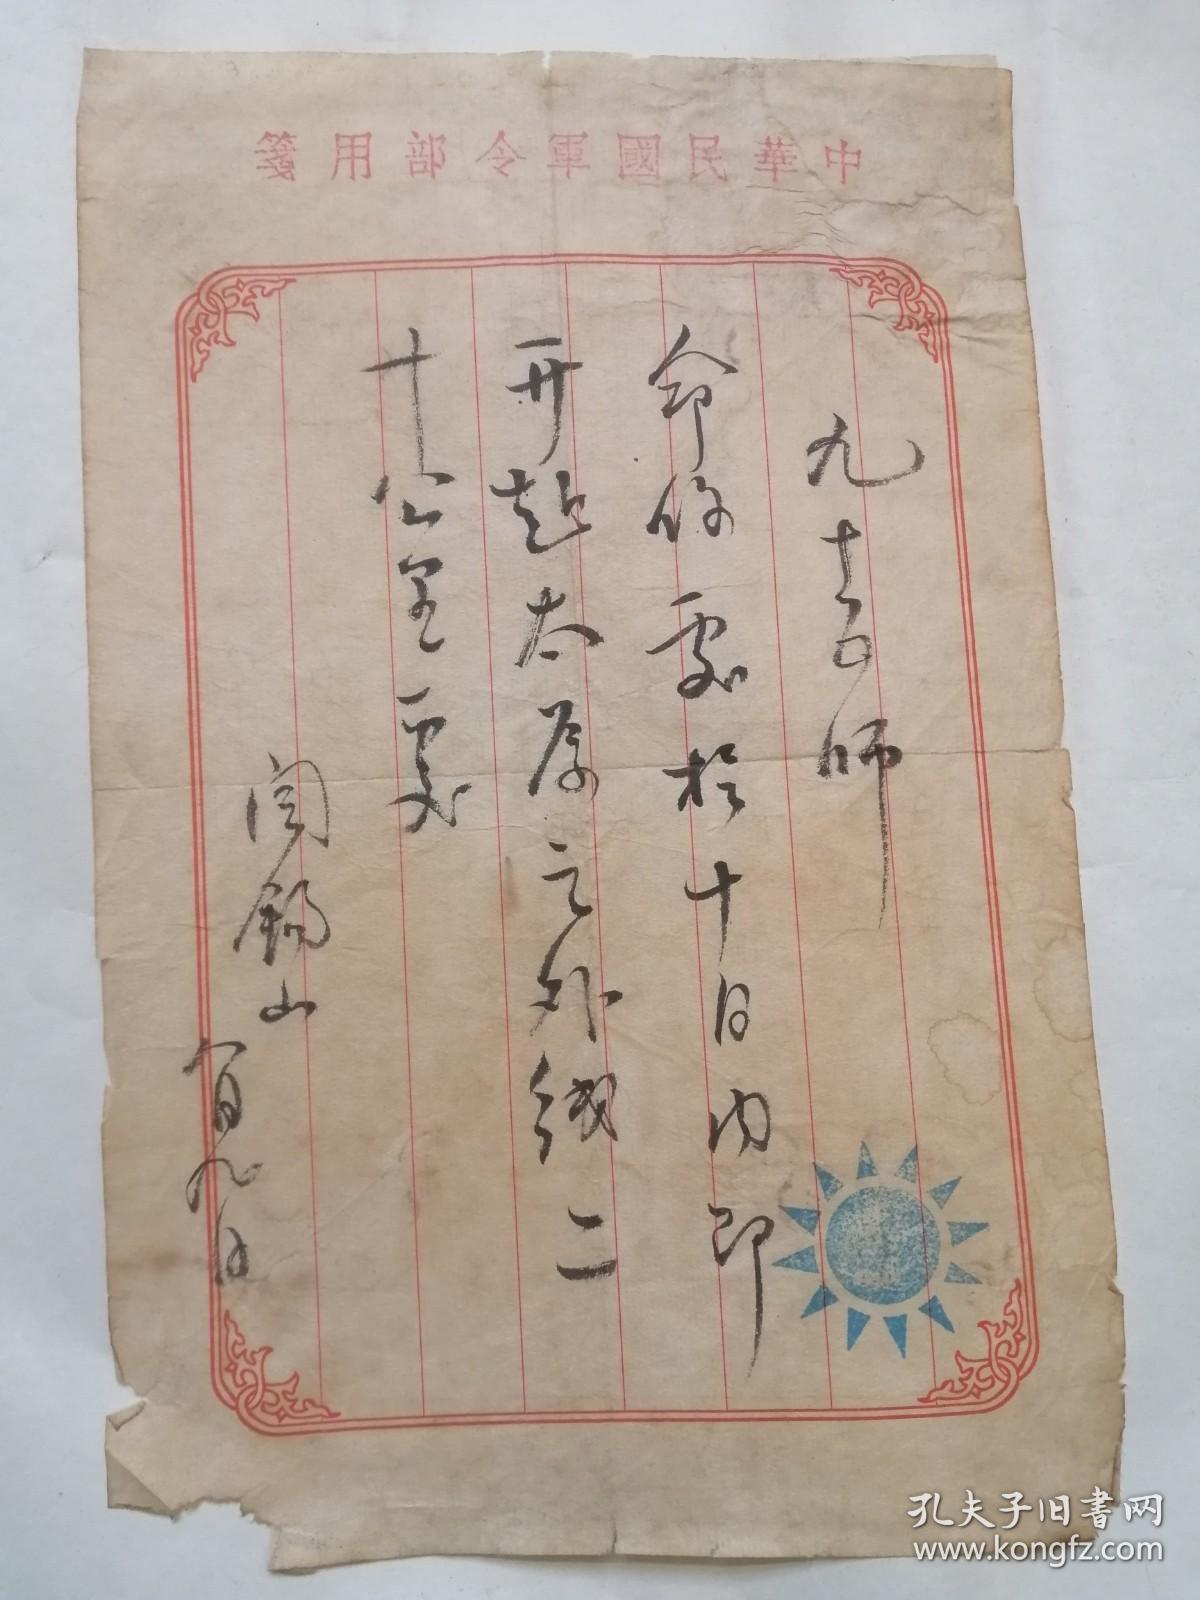 中華民國軍令部用箋
九十五師
命你處於十日内即
开赴太原之外线二
十公里處
阎錫山
八月九日
孔夫子旧書网
www.kongfz.com